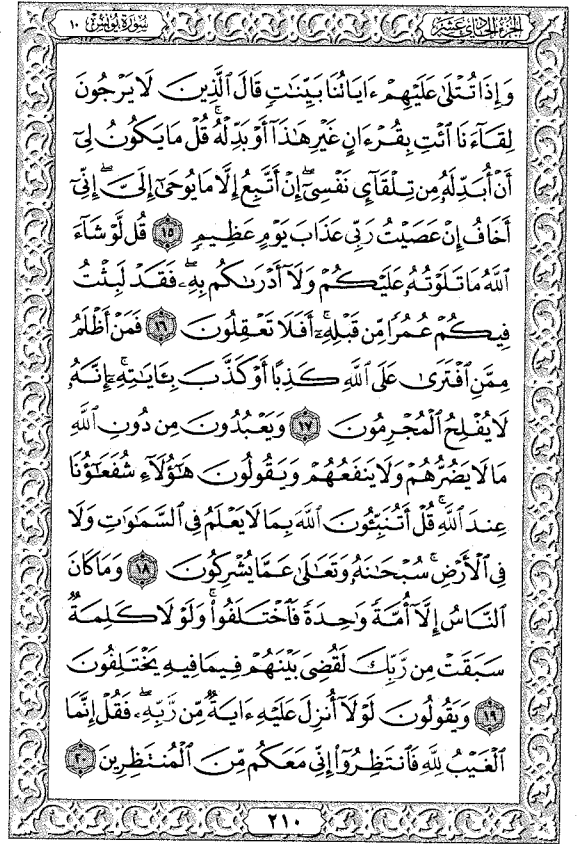 الجزء الحادي عشر
سورة يونس ١٠
وَإِذَا تُتْلَىٰ عَلَيْهِمْ ءَايَاتُنَا بَيِّنَٰتٍ قَالَ ٱلَّذِينَ لَا يَرْجُونَ
لِقَآءَنَا ٱئْتِ بِقُرْءَانٍ غَيْرِ هَٰذَآ أَوْ بَدِّلْهُ ۚ قُلْ مَا يَكُونُ لِىٓ
أَنْ أُبَدِّلَهُۥ مِن تِلْقَآئِ نَفْسِىٓ ۖ إِنْ أَتَّبِعُ إِلَّا مَا يُوحَىٰٓ إِلَىَّ ۖ إِنِّىٓ
أَخَافُ إِنْ عَصَيْتُ رَبِّى عَذَابَ يَوْمٍ عَظِيمٍ ١٥ قُل لَّوْ شَآءَ
ٱللَّهُ مَا تَلَوْتُهُۥ عَلَيْكُمْ وَلَآ أَدْرَىٰكُم بِهِۦ ۖ فَقَدْ لَبِثْتُ
فِيكُمْ عُمُرًا مِّن قَبْلِهِۦٓ ۚ أَفَلَا تَعْقِلُونَ ١٦ فَمَنْ أَظْلَمُ
مِمَّنِ ٱفْتَرَىٰ عَلَى ٱللَّهِ كَذِبًا أَوْ كَذَّبَ بِـَٔايَٰتِهِۦٓ ۚ إِنَّهُۥ
لَا يُفْلِحُ ٱلْمُجْرِمُونَ ١٧ وَيَعْبُدُونَ مِن دُونِ ٱللَّهِ
مَا لَا يَضُرُّهُمْ وَلَا يَنفَعُهُمْ وَيَقُولُونَ هَٰٓؤُلَآءِ شُفَعَٰٓؤُنَا
عِندَ ٱللَّهِ ۚ قُلْ أَتُنَبِّـُٔونَ ٱللَّهَ بِمَا لَا يَعْلَمُ فِى ٱلسَّمَٰوَٰتِ وَلَا
فِى ٱلْأَرْضِ ۚ سُبْحَٰنَهُۥ وَتَعَٰلَىٰ عَمَّا يُشْرِكُونَ ١٨ وَمَا كَانَ
ٱلنَّاسُ إِلَّآ أُمَّةً وَٰحِدَةً فَٱخْتَلَفُوا۟ ۚ وَلَوْلَا كَلِمَةٌ
سَبَقَتْ مِن رَّبِّكَ لَقُضِىَ بَيْنَهُمْ فِيمَا فِيهِ يَخْتَلِفُونَ
١٩ وَيَقُولُونَ لَوْلَآ أُنزِلَ عَلَيْهِ ءَايَةٌ مِّن رَّبِّهِۦ ۖ فَقُلْ إِنَّمَا
ٱلْغَيْبُ لِلَّهِ فَٱنتَظِرُوٓا۟ إِنِّى مَعَكُم مِّنَ ٱلْمُنتَظِرِينَ ٢٠
٢١٠